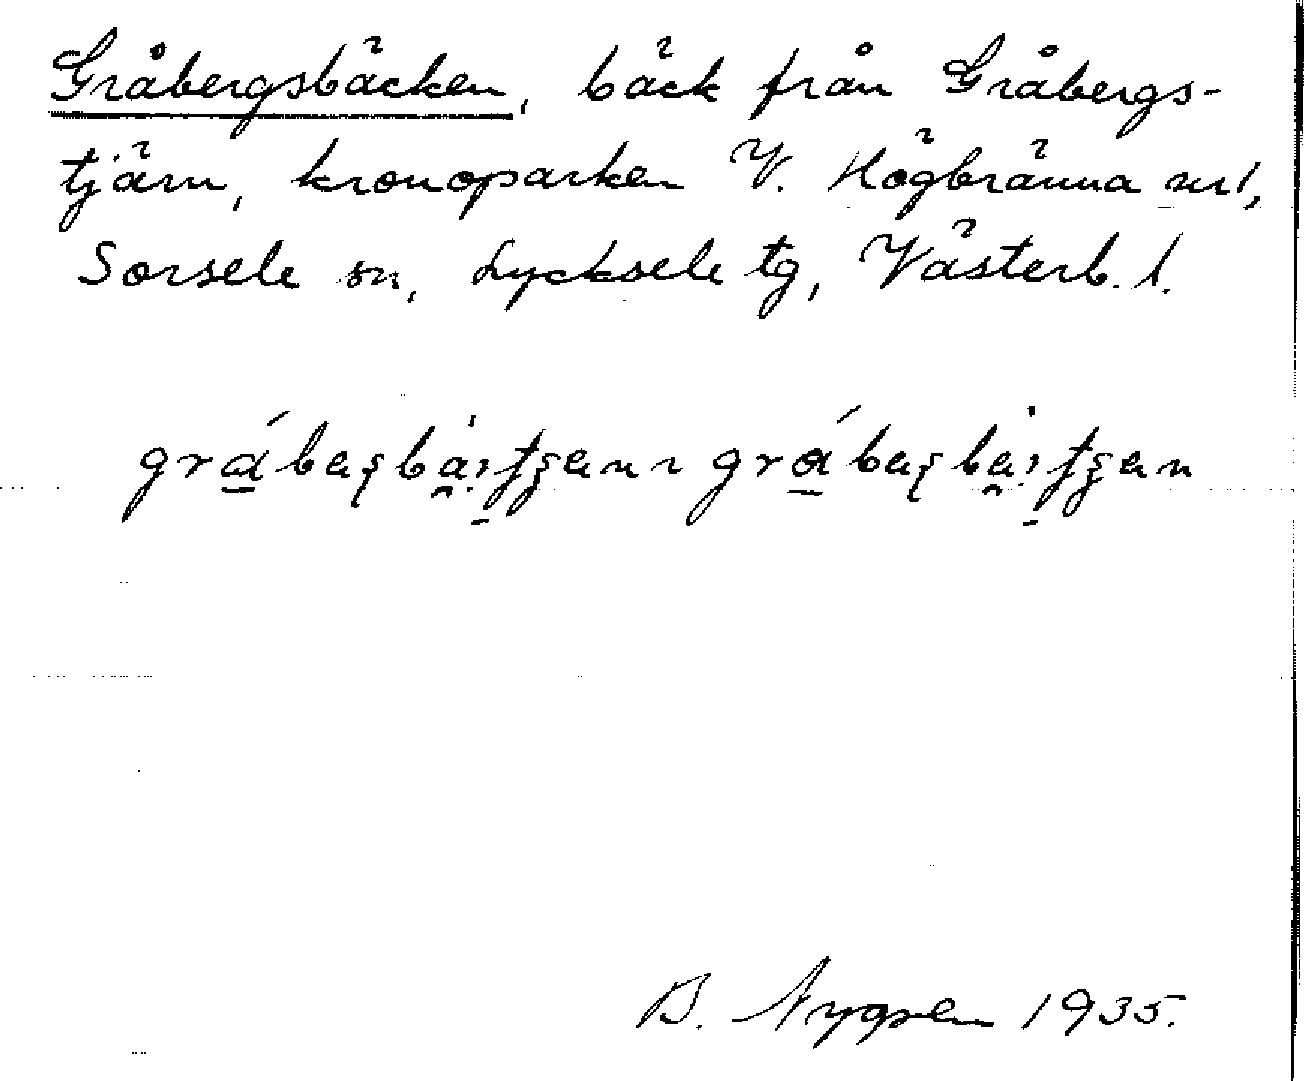 Gråbergsbäcken, bäck från Gråbergs-
tjärn, kronoparken V. Högbränna nr 1,
Sorsele sn, Lycksele tg, Västerb. l.
B. Nygren 1935.